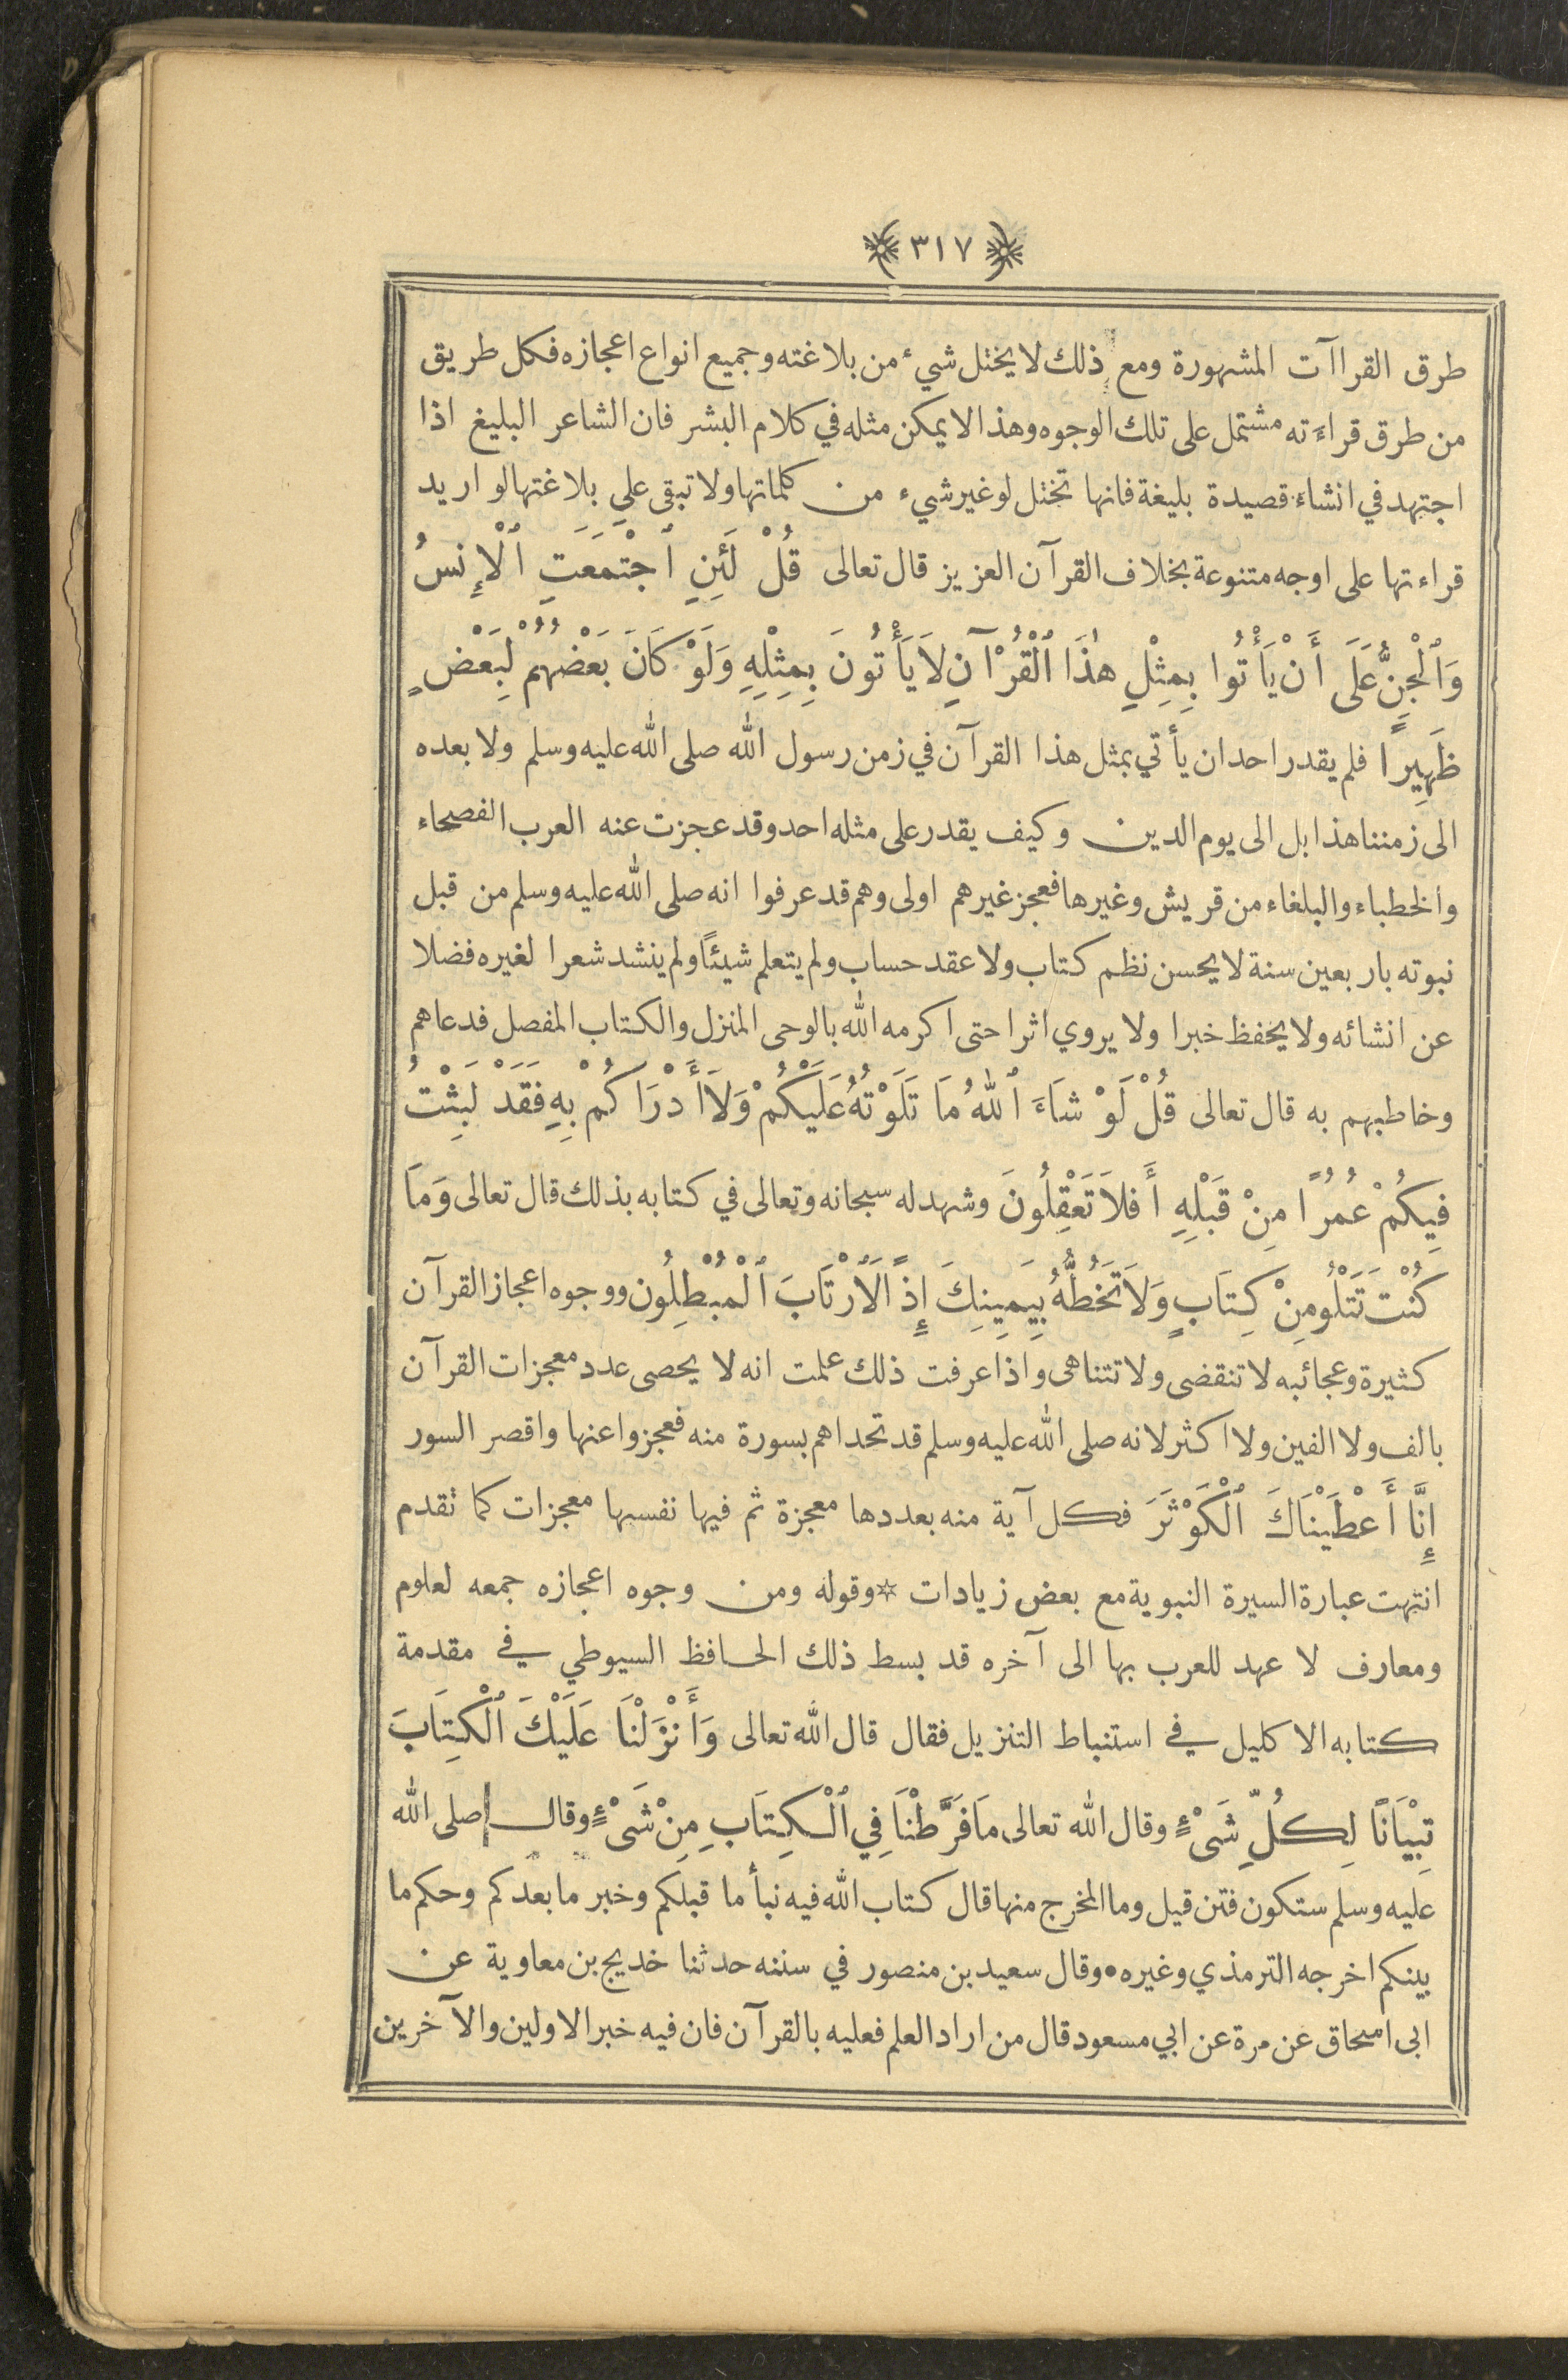 ٣١٧
طرق القراآت المشهورة ومع ذلك لا يختل شيء من بلاغته وجميع انواع اعجازه فكل طريق
من طرق قراءَته مشتمل على تلك الوجوه وهذا لا يمكن مثله في كلام البشر فان الشاعر البليغ اذا
اجتهد في انشاء قصيدة بليغة فانها تختل لو غير شيء من كلماتها ولا تبقى على بلاغتها لو اريد
قراءتها على اوجه متنوعة بخلاف القرآن العزيز قال تعالى قُلْ لَئِنِ ٱجْتَمَعَتِ ٱلْإِنسُ
وَٱلْجِنُّ عَلَى أَنْ يَأْتُوا بِمِثْلِ هٰذَا ٱلْقُرْآنِ لاَ يَأْتُونَ بِمِثْلِهِ وَلَوْ كَانَ بَعْضُهُمْ لِبَعْضٍ
ظَهِيرًا فلم يقدر احد ان يأتي بمثل هذا القرآن في زمن رسول الله صلى الله عليه وسلم ولا بعده
الى زمننا هذا بل الى يوم الدين وكيف يقدر على مثله احد وقد عجزت عنه العرب الفصحاء
والخطباء والبلغاء من قريش وغيرها فعجز غيرهم اولى وهم قد عرفوا انه صلى الله عليه وسلم من قبل
نبوته باربعين سنة لا يحسن نظم كتاب ولا عقد حساب ولم يتعلم شيئًا ولم ينشد شعرا لغيره فضلا
عن انشائه ولا يحفظ خبرا ولا يروي اثرا حتى اكرمه الله بالوحى المنزل والكتاب المفصل فدعاهم
وخاطبهم به قال تعالى قُلْ لَوْ شَاءَ ٱللهُ مَا تَلَوْتُهُ عَلَيْكُمْ وَلاَ أَدْرَاكُمْ بِهِ فَقَدْ لَبِثْتُ
فِيكُمْ عُمُرًا مِنْ قَبْلِهِ أَفَلاَ تَعْقِلُونَ وشهد له سبحانه وتعالى في كتابه بذلك قال تعالى وَمَا
كُنْتَ تَتْلُو مِنْ كِتَابٍ وَلاَ تَخُطُّهُ بِيَمِينِكَ إِذًا لَٱرْتَابَ ٱلْمُبْطِلُون ووجوه اعجاز القرآن
كثيرة وعجائبه لا تنقضى ولا تتناهى واذا عرفت ذلك علمت انه لا يحصى عدد معجزات القرآن
بالف ولا الفين ولا اكثر لانه صلى الله عليه وسلم قد تحداهم بسورة منه فعجزوا عنها واقصر السور
إِنَّا أَعْطَيْنَاكَ ٱلْكَوْثَرَ فكل آية منه بعددها معجزة ثم فيها نفسها معجزات كما تقدم
انتهت عبارة السيرة النبوية مع بعض زيادات ☆ وقوله ومن وجوه اعجازه جمعه لعلوم
ومعارف لا عهد للعرب بها الى آخره قد بسط ذلك الحافظ السيوطي في مقدمة
كتابه الاكليل في استنباط التنزيل فقال قال الله تعالى وَأَنْزَلْنَا عَلَيْكَ ٱلْكِتَابَ
تِبْيَانًا لِكُلِّ شَىْءٍ وقال الله تعالى مَا فَرَّطْنَا فِي ٱلْكِتَابِ مِنْ شَىْءٍ وقال صلى الله
عليه وسلم ستكون فتن قيل وما المخرج منها قال كتاب الله فيه نبأ ما قبلكم وخبر ما بعدكم وحكم ما
بينكم اخرجه الترمذي وغيره • وقال سعيد بن منصور في سننه حدثنا خديج بن معاوية عن
ابى اسحاق عن مرة عن ابي مسعود قال من اراد العلم فعليه بالقرآن فان فيه خبر الاولين والآخرين